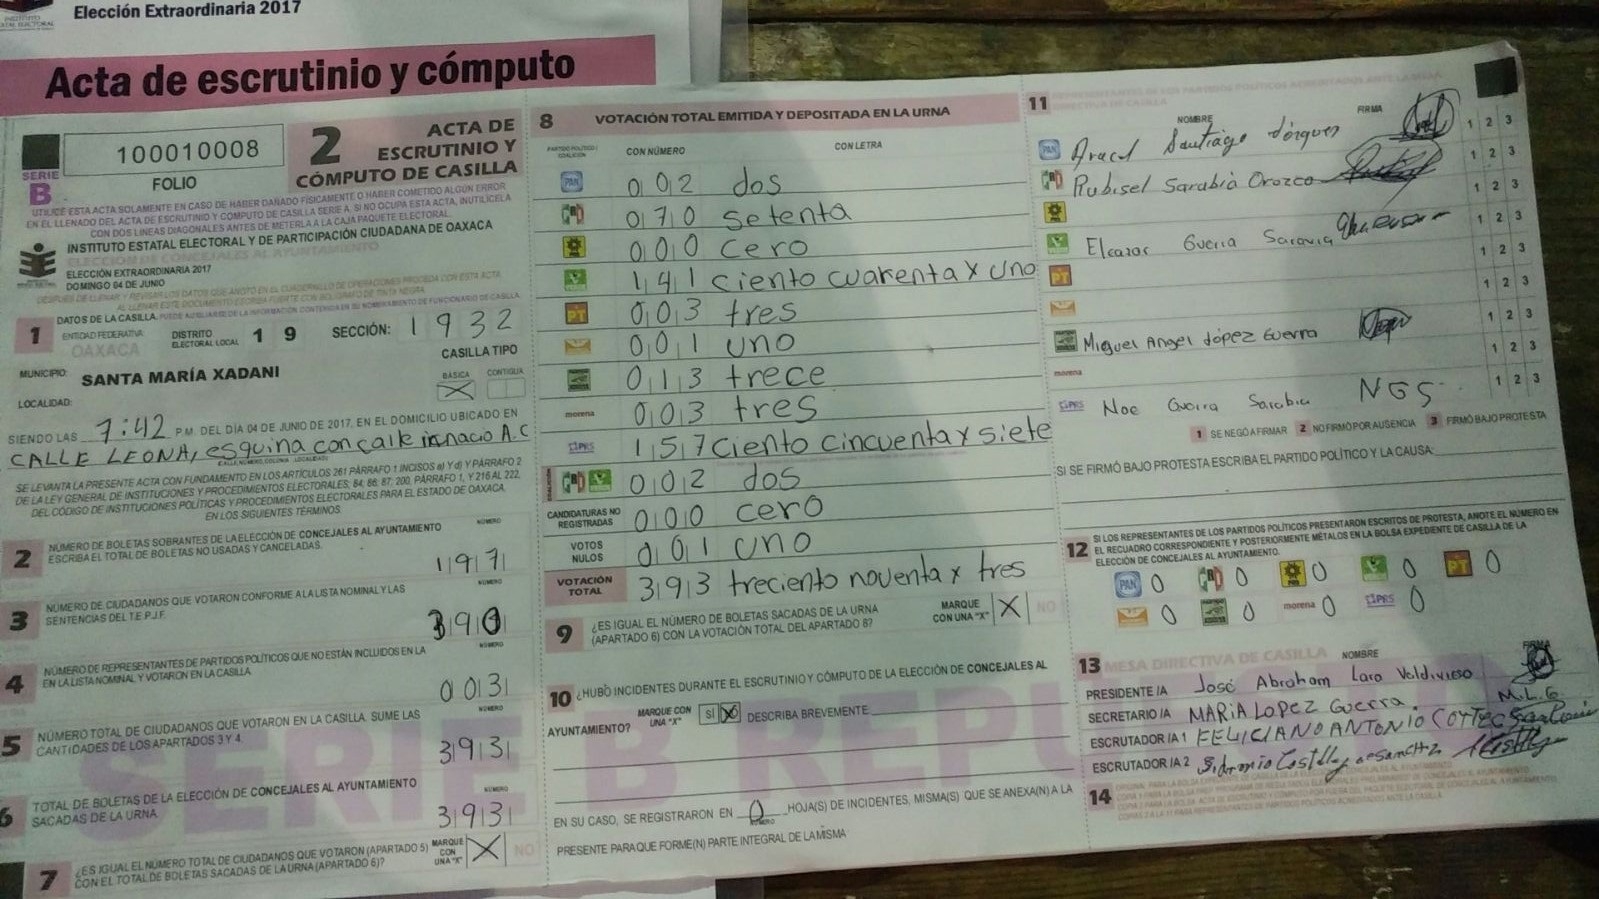 Elección Extraordinaria 2017
Acta de escrutinio y cómputo
SERIE
B
100010008
FOLIO
2
ACTA DE
ESCRUTINIO Y
CÓMPUTO DE CASILLA
UTILICE ESTA ACTA SOLAMENTE EN CASO DE HABER DAÑADO FÍSICAMENTE O HABER COMETIDO ALGÚN ERROR
EN EL LLENADO DEL ACTA DE ESCRUTINIO Y CÓMPUTO DE CASILLA SERIE A. SI NO OCUPA ESTA ACTA, INUTILÍCELA
CON DOS LÍNEAS DIAGONALES ANTES DE METERLA A LA CAJA PAQUETE ELECTORAL.
INSTITUTO ESTATAL ELECTORAL Y DE PARTICIPACIÓN CIUDADANA DE OAXACA
ELECCIÓN DE CONCEJALES AL AYUNTAMIENTO
ELECCIÓN EXTRAORDINARIA 2017
DOMINGO 04 DE JUNIO
1 DATOS DE LA CASILLA.
ENTIDAD FEDERATIVA
OAXACA
DISTRITO
ELECTORAL LOCAL 1 9 SECCIÓN: 1 9 3 2
CASILLA TIPO
MUNICIPIO: SANTA MARÍA XADANI
BÁSICA X CONTIGUA
LOCALIDAD:
SIENDO LAS 7:42 P.M. DEL DÍA 04 DE JUNIO DE 2017, EN EL DOMICILIO UBICADO EN
CALLE LEONA, esquina con calle
SE LEVANTA LA PRESENTE ACTA CON FUNDAMENTO EN LOS ARTÍCULOS 261 PÁRRAFO 1 INCISOS a) Y d) Y PÁRRAFO 2
DE LA LEY GENERAL DE INSTITUCIONES Y PROCEDIMIENTOS ELECTORALES; 84; 86; 87; 200, PÁRRAFO 1, Y 216 AL 222,
DEL CÓDIGO DE INSTITUCIONES POLÍTICAS Y PROCEDIMIENTOS ELECTORALES PARA EL ESTADO DE OAXACA,
EN LOS SIGUIENTES TÉRMINOS:
2 NÚMERO DE BOLETAS SOBRANTES DE LA ELECCIÓN DE CONCEJALES AL AYUNTAMIENTO
ESCRIBA EL TOTAL DE BOLETAS NO USADAS Y CANCELADAS.
NÚMERO
197
3 NÚMERO DE CIUDADANOS QUE VOTARON CONFORME A LA LISTA NOMINAL Y LAS
SENTENCIAS DEL T.E.P.J.F.
NÚMERO
390
4 NÚMERO DE REPRESENTANTES DE PARTIDOS POLÍTICOS QUE NO ESTÁN INCLUIDOS EN LA
EN LA LISTA NOMINAL Y VOTARON EN LA CASILLA
NÚMERO
003
5 NÚMERO TOTAL DE CIUDADANOS QUE VOTARON EN LA CASILLA. SUME LAS
CANTIDADES DE LOS APARTADOS 3 Y 4
NÚMERO
393
6 TOTAL DE BOLETAS DE LA ELECCIÓN DE CONCEJALES AL AYUNTAMIENTO
SACADAS DE LA URNA
NÚMERO
393
7 ¿ES IGUAL EL NÚMERO TOTAL DE CIUDADANOS QUE VOTARON (APARTADO 5)
CON EL TOTAL DE BOLETAS SACADAS DE LA URNA (APARTADO 6)?
MARQUE
CON
UNA "X" X NO
SERIE B REPUESTO
8 VOTACIÓN TOTAL EMITIDA Y DEPOSITADA EN LA URNA
PARTIDO POLÍTICO / COALICIÓN CON NÚMERO CON LETRA
PAN 002 dos
PRI 070 setenta
PRD 000 cero
VERDE 141 ciento cuarenta y uno
PT 003 tres
001 uno
013 trece
morena 003 tres
PRS 157 ciento cincuenta y siete
COALICIÓN PRI VERDE 002 dos
CANDIDATURAS NO
REGISTRADAS 000 cero
VOTOS
NULOS 001 uno
VOTACIÓN
TOTAL 393 treciento noventa y tres
9 ¿ES IGUAL EL NÚMERO DE BOLETAS SACADAS DE LA URNA
(APARTADO 6) CON LA VOTACIÓN TOTAL DEL APARTADO 8?
MARQUE
CON UNA "X" X NO
10 ¿HUBO INCIDENTES DURANTE EL ESCRUTINIO Y CÓMPUTO DE LA ELECCIÓN DE CONCEJALES AL
AYUNTAMIENTO? MARQUE CON UNA "X" SI X DESCRIBA BREVEMENTE
EN SU CASO, SE REGISTRARON EN 0 HOJA(S) DE INCIDENTES, MISMA(S) QUE SE ANEXA(N) A LA
NÚMERO
PRESENTE PARA QUE FORME(N) PARTE INTEGRAL DE LA MISMA
11
NOMBRE FIRMA
PAN Santiago 1 2 3
PRI Rubisel Sarabia Orozco 1 2 3
PRD 1 2 3
VERDE Eleazar Guerra Saravia 1 2 3
PT 1 2 3
1 2 3
Miguel Angel López Guerra 1 2 3
morena 1 2 3
PRS Noe Guerra Sarabia NGS 1 2 3
1 SE NEGÓ A FIRMAR 2 NO FIRMÓ POR AUSENCIA 3 FIRMÓ BAJO PROTESTA
SI SE FIRMÓ BAJO PROTESTA ESCRIBA EL PARTIDO POLÍTICO Y LA CAUSA:
12 SI LOS REPRESENTANTES DE LOS PARTIDOS POLÍTICOS PRESENTARON ESCRITOS DE PROTESTA, ANOTE EL NÚMERO EN
EL RECUADRO CORRESPONDIENTE Y POSTERIORMENTE MÉTALOS EN LA BOLSA EXPEDIENTE DE CASILLA DE LA
ELECCIÓN DE CONCEJALES AL AYUNTAMIENTO.
PAN 0 PRI 0 PRD 0 VERDE 0 PT 0
0 0 morena 0 PRS 0
13 MESA DIRECTIVA DE CASILLA NOMBRE FIRMA
PRESIDENTE/A José Abraham Lara Valdivieso
SECRETARIO/A MARIA LOPEZ Guerra. M.L.G
ESCRUTADOR/A 1 FELICIANO ANTONIO
ESCRUTADOR/A 2
14